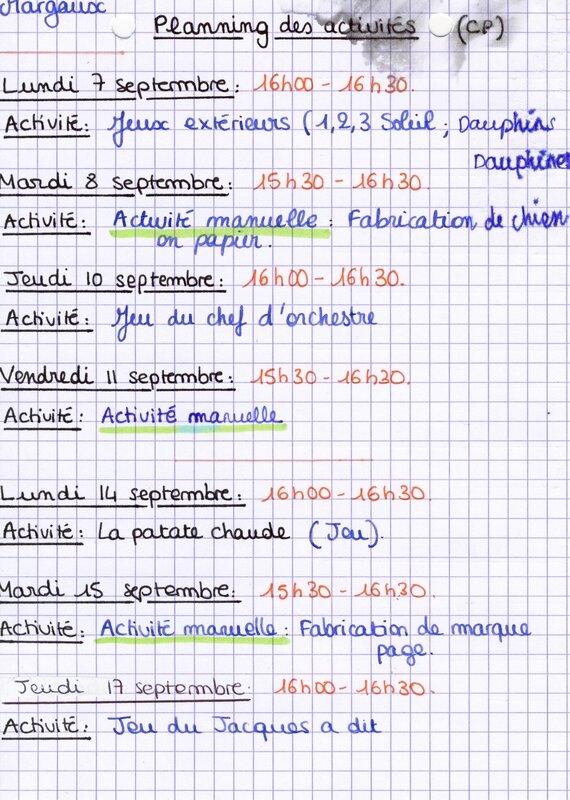 Margaux
Planning des activités (CP)
Lundi 7 septembre : 16h00 - 16h30.
Activité : Jeux extérieurs (1,2,3 Soleil ; Dauphins
Dauphines
Mardi 8 septembre : 15h30 - 16h30.
Activité : Activité manuelle : Fabrication de chien
en papier.
Jeudi 10 septembre : 16h00 - 16h30.
Activité : Jeu du chef d'orchestre
Vendredi 11 septembre : 15h30 - 16h30.
Activité : Activité manuelle
Lundi 14 septembre : 16h00 - 16h30.
Activité : La patate chaude (Jeu).
Mardi 15 septembre : 15h30 - 16h30.
Activité : Activité manuelle : Fabrication de marque
page.
Jeudi 17 septembre : 16h00 - 16h30.
Activité : Jeu du Jacques a dit